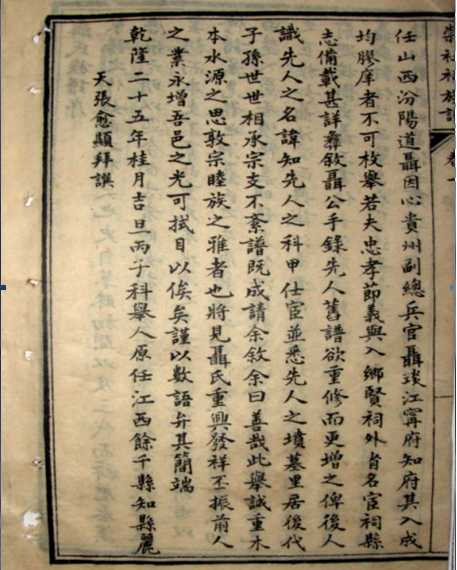 任山西汾陽道聶因心貴州副總兵官聶琰江寧府知府其入成
均膠庠者不可枚舉若夫忠孝節義與入鄉賢祠外省名宦祠縣
志備載甚詳彝敘聶公手錄先人舊譜欲重修而更增之俾後人
識先人之名諱知先人之科甲仕宦並悉先人之墳墓里居後代
子孫世世相承宗支不紊譜既成請余敘余曰善哉此舉誠重木
本水源之思敦宗睦族之雅者也將見聶氏重興發祥丕振前人
之業永增吾邑之光可拭目以俟矣謹以數語弁其簡端
乾隆二十五年桂月吉旦丙子科舉人原任江西餘干縣知縣麗
天張愈顯拜譔